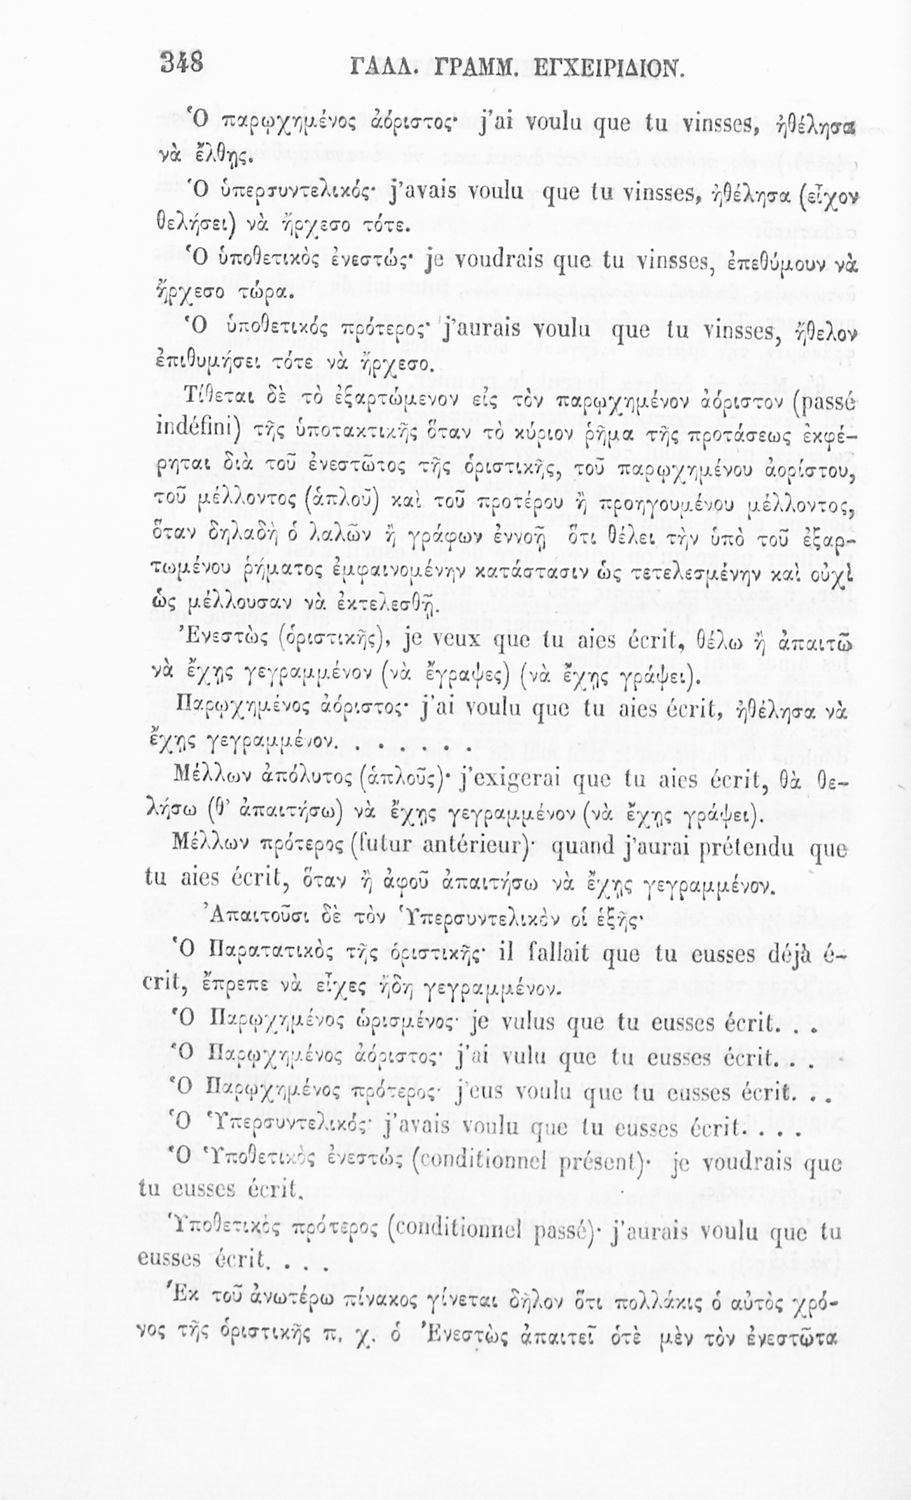 348 ΓΑΛΛ. ΓΡΑΜΜ. ΕΓΧΕΙΡΙΔΙΟΝ.
Ὁ παρῳχημένος ἀόριστος· j’ai voulu que tu vinsses, ἠθέλησα
νὰ ἔλθῃς.
Ὁ ὑπερσυντελικός· j’avais voulu que tu vinsses, ἠθέλησα (εἶχον
θελήσει) νὰ ἤρχεσο τότε.
Ὁ ὑποθετικὸς ἐνεστώς· je voudrais que tu vinsses, ἐπεθύμουν νὰ
ἤρχεσο τώρα.
Ὁ ὑποθετικός πρότερος· j’aurais voulu que tu vinsses, ἤθελον
ἐπιθυμήσει τότε νὰ ἤρχεσο.
Τίθεται δὲ τὸ ἐξαρτώμενον εἰς τὸν παρῳχημένον ἀόριστον (passé
indéfini) τῆς ὑποτακτικῆς ὅταν τὸ κύριον ῥῆμα τῆς προτάσεως ἐκφέ-
ρηται διὰ τοῦ ἐνεστῶτος τῆς ὁριστικῆς, τοῦ παρῳχημένου ἀορίστου,
τοῦ μέλλοντος (ἁπλοῦ) καὶ τοῦ προτέρου ἢ προηγουμένου μέλλοντος,
ὅταν δηλαδὴ ὁ λαλῶν ἢ γράφων ἐννοῇ ὅτι θέλει τὴν ὑπὸ τοῦ ἐξαρ-
τωμένου ῥήματος ἐμφαινομένην κατάστασιν ὡς τετελεσμένην καὶ οὐχὶ
ὡς μέλλουσαν νὰ ἐκτελεσθῇ.
Ἐνεστὼς (ὁριστικῆς), je veux que tu aies écrit, θέλω ἢ ἀπαιτῶ
νὰ ἔχῃς γεγραμμένον (νὰ ἔγραψες) (νὰ ἔχῃς γράψει).
Παρῳχημένος ἀόριστος· j’ai voulu que tu aies écrit, ἠθέλησα νὰ
ἔχῃς γεγραμμένον. . . . . . .
Μέλλων ἀπόλυτος (ἁπλοῦς)· j’exigerai que tu aies écrit, θὰ θε-
λήσω (θ’ ἀπαιτήσω) νὰ ἔχῃς γεγραμμένον (νὰ ἔχῃς γράψει).
Μέλλων πρότερος (futur antérieur)· quand j’aurai prétendu que
tu aies écrit, ὅταν ἢ ἀφοῦ ἀπαιτήσω νὰ ἔχῃς γεγραμμένον.
Ἀπαιτοῦσι δὲ τὸν Ὑπερσυντελικὸν οἱ ἑξῆς·
Ὁ Παρατατικὸς τῆς ὁριστικῆς· il fallait que tu eusses déjà é-
crit, ἔπρεπε νὰ εἶχες ἤδη γεγραμμένον.
Ὁ Παρῳχημένος ὡρισμένος· je vulus que tu eusses écrit. . .
Ὁ Παρῳχημένος ἀόριστος· j’ai vulu que tu eusses écrit. . .
Ὁ Παρῳχημένος πρότερος· j’eus voulu que tu eusses écrit. . .
Ὁ Ὑπερσυντελικός· j’avais voulu que tu eusses écrit. . . .
Ὁ Ὑποθετικὸς ἐνεστώς (conditionnel présent)· je voudrais que
tu eusses écrit.
Ὑποθετικὸς πρότερος (conditionnel passé)· j’aurais voulu que tu
eusses écrit. . . .
Ἐκ τοῦ ἀνωτέρω πίνακος γίνεται δῆλον ὅτι πολλάκις ὁ αὐτὸς χρό-
νος τῆς ὁριστικῆς π. χ. ὁ Ἐνεστὼς ἀπαιτεῖ ὁτὲ μὲν τὸν ἐνεστῶτα